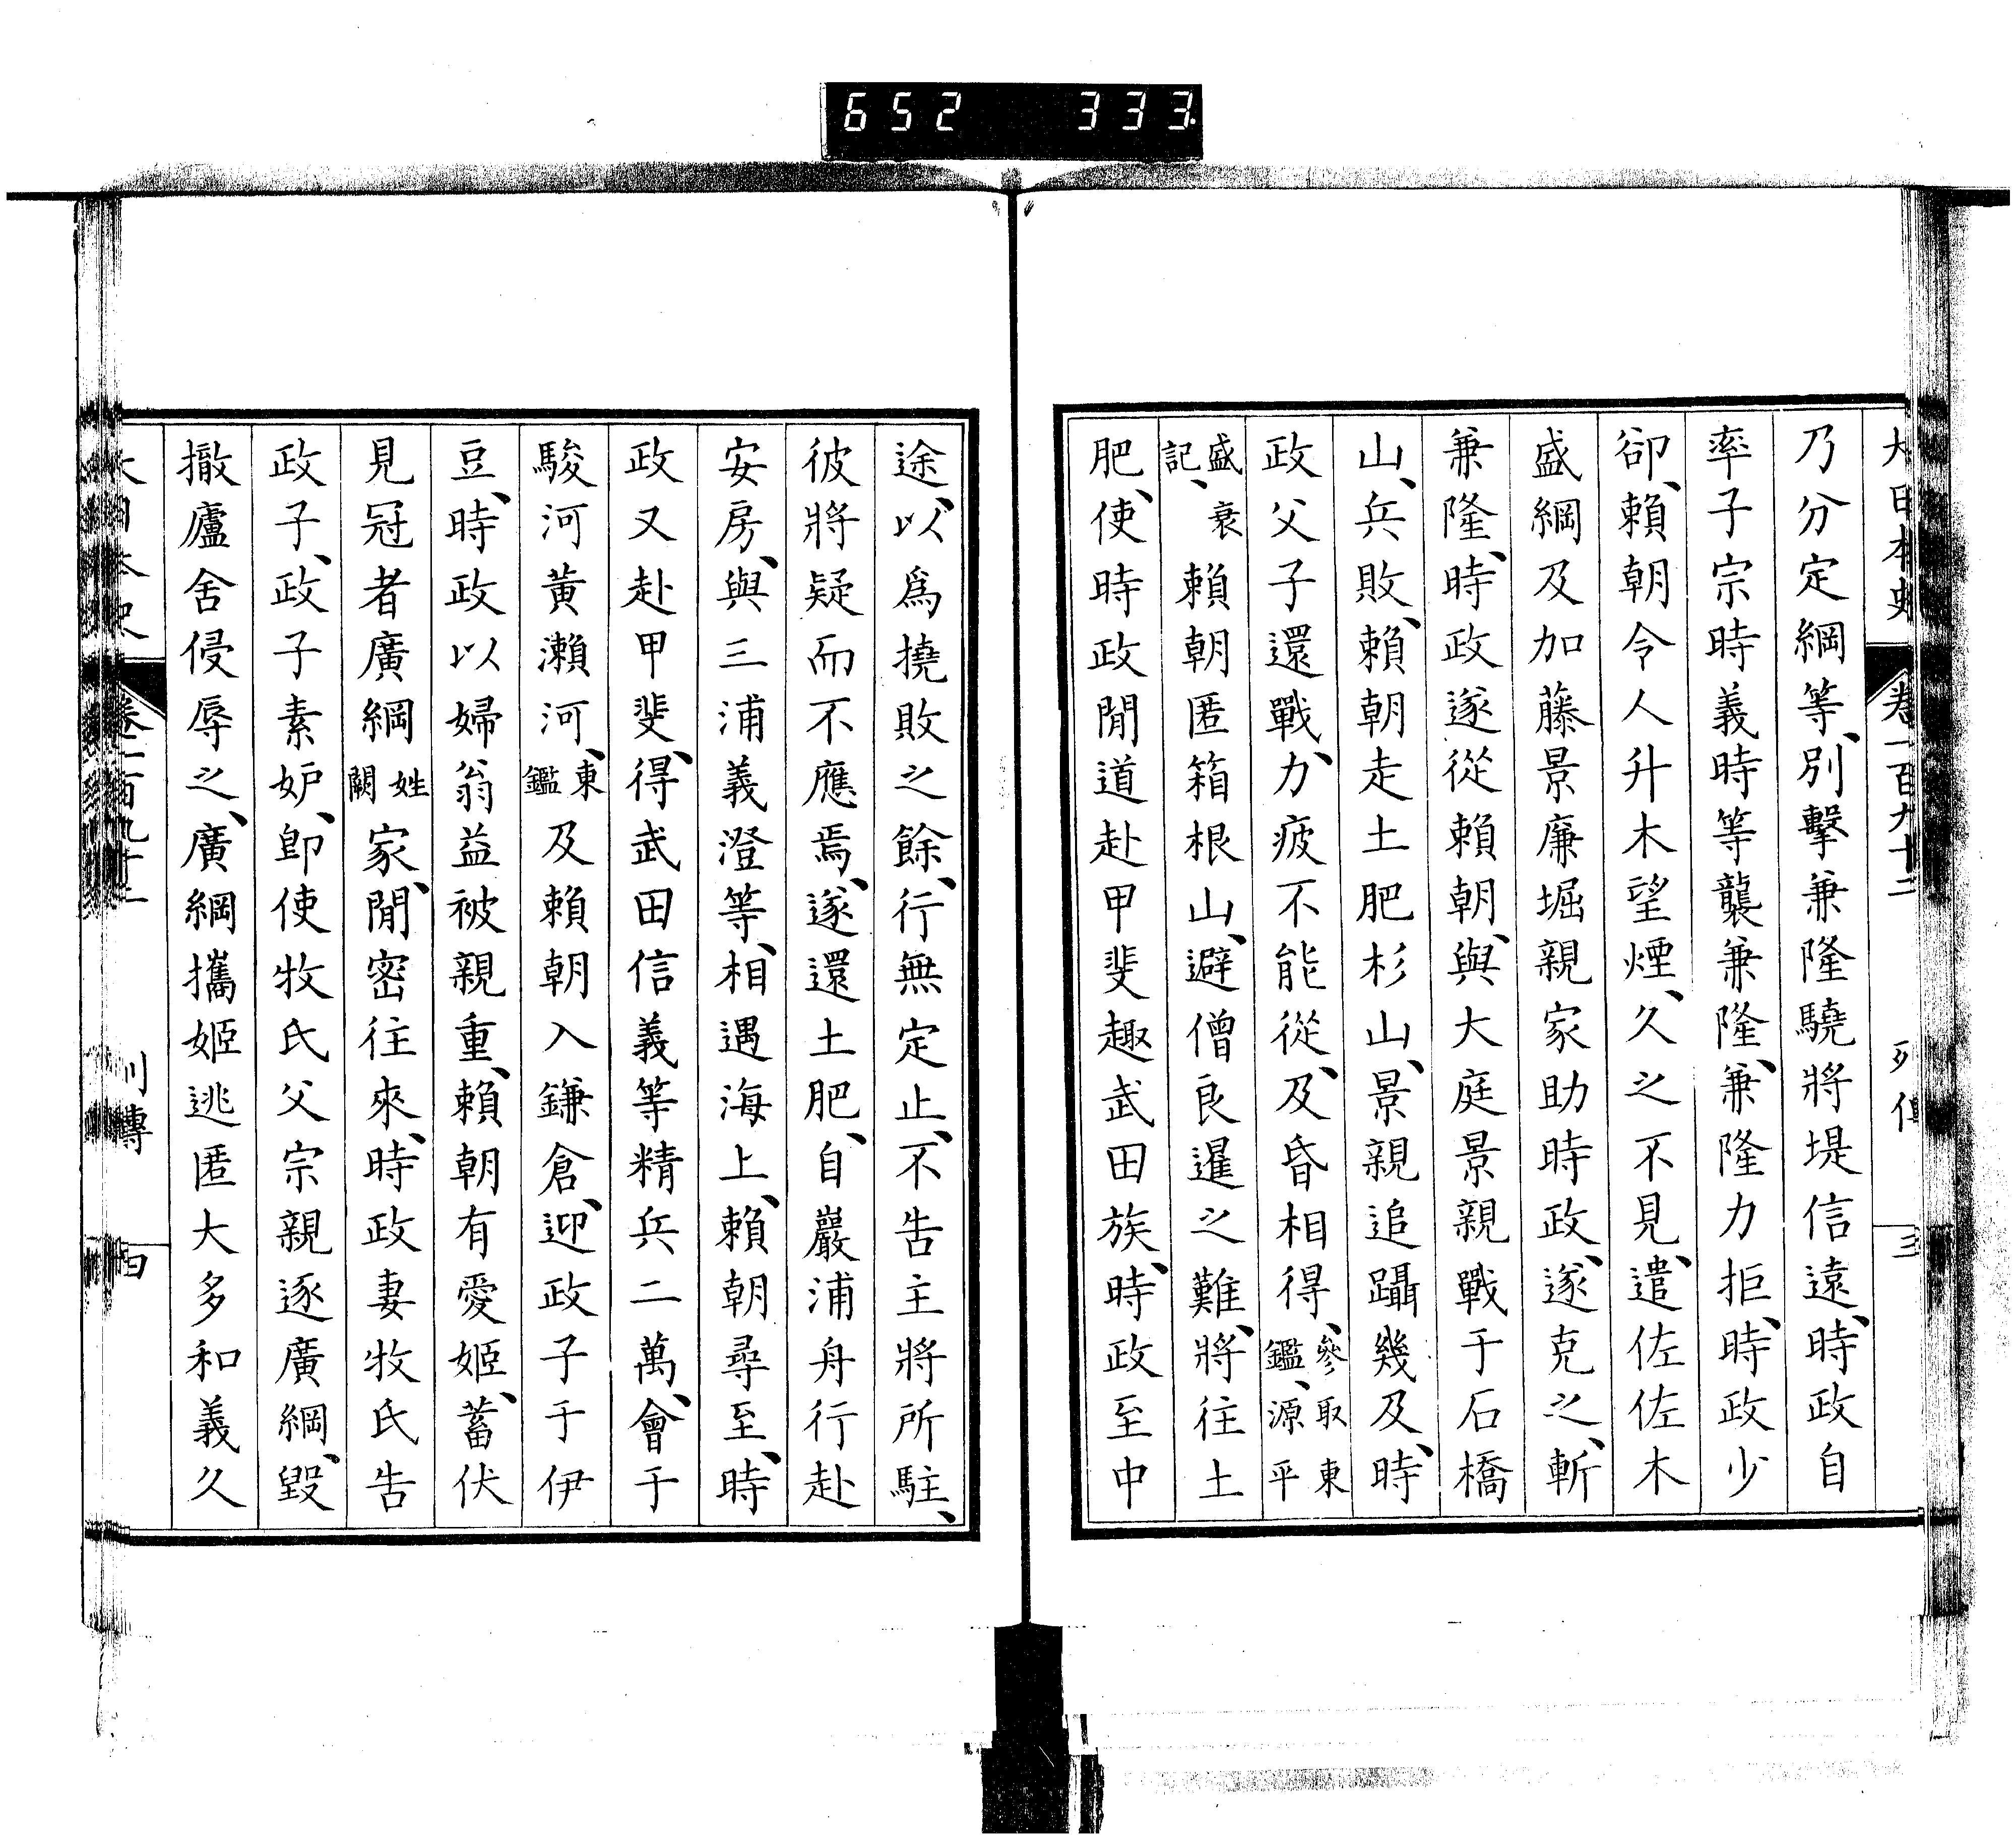 652 333
大日本史 卷一百九十二 列傳 三
乃分定綱等、別擊兼隆驍將堤信遠、時政自
率子宗時義時等襲兼隆、兼隆力拒、時政少
卻、賴朝令人升木望煙、久之不見、遣佐佐木
盛綱及加藤景廉堀親家助時政、遂克之、斬
兼隆、時政遂從賴朝、與大庭景親戰于石橋
山、兵敗、賴朝走土肥杉山、景親追躡幾及、時
政父子還戰、力疲不能從、及昏相得、參取東鑑、源平
盛衰記、賴朝匿箱根山、避僧良暹之難、將往土
肥、使時政閒道赴甲斐趣武田族、時政至中
途、以爲撓敗之餘、行無定止、不告主將所駐、
彼將疑而不應焉、遂還土肥、自巖浦舟行赴
安房、與三浦義澄等、相遇海上、賴朝尋至、時
政又赴甲斐、得武田信義等精兵二萬、會于
駿河黃瀨河、東鑑及賴朝入鎌倉、迎政子于伊
豆、時政以婦翁益被親重、賴朝有愛姬、蓄伏
見冠者廣綱姓闕家、閒密往來、時政妻牧氏告
政子、政子素妒、卽使牧氏父宗親逐廣綱、毀
撤廬舍侵辱之、廣綱攜姬逃匿大多和義久
大日本史 卷一百九十二 列傳 四